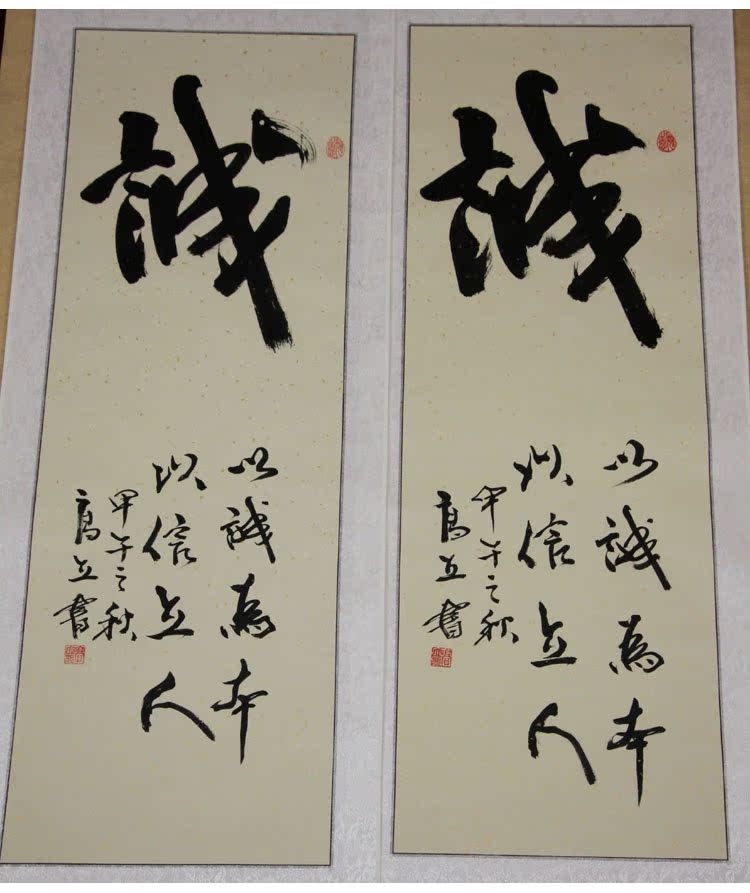 誠
以誠為本
以信立人
甲午之秋
高立書
誠
以誠為本
以信立人
甲午之秋
高立書